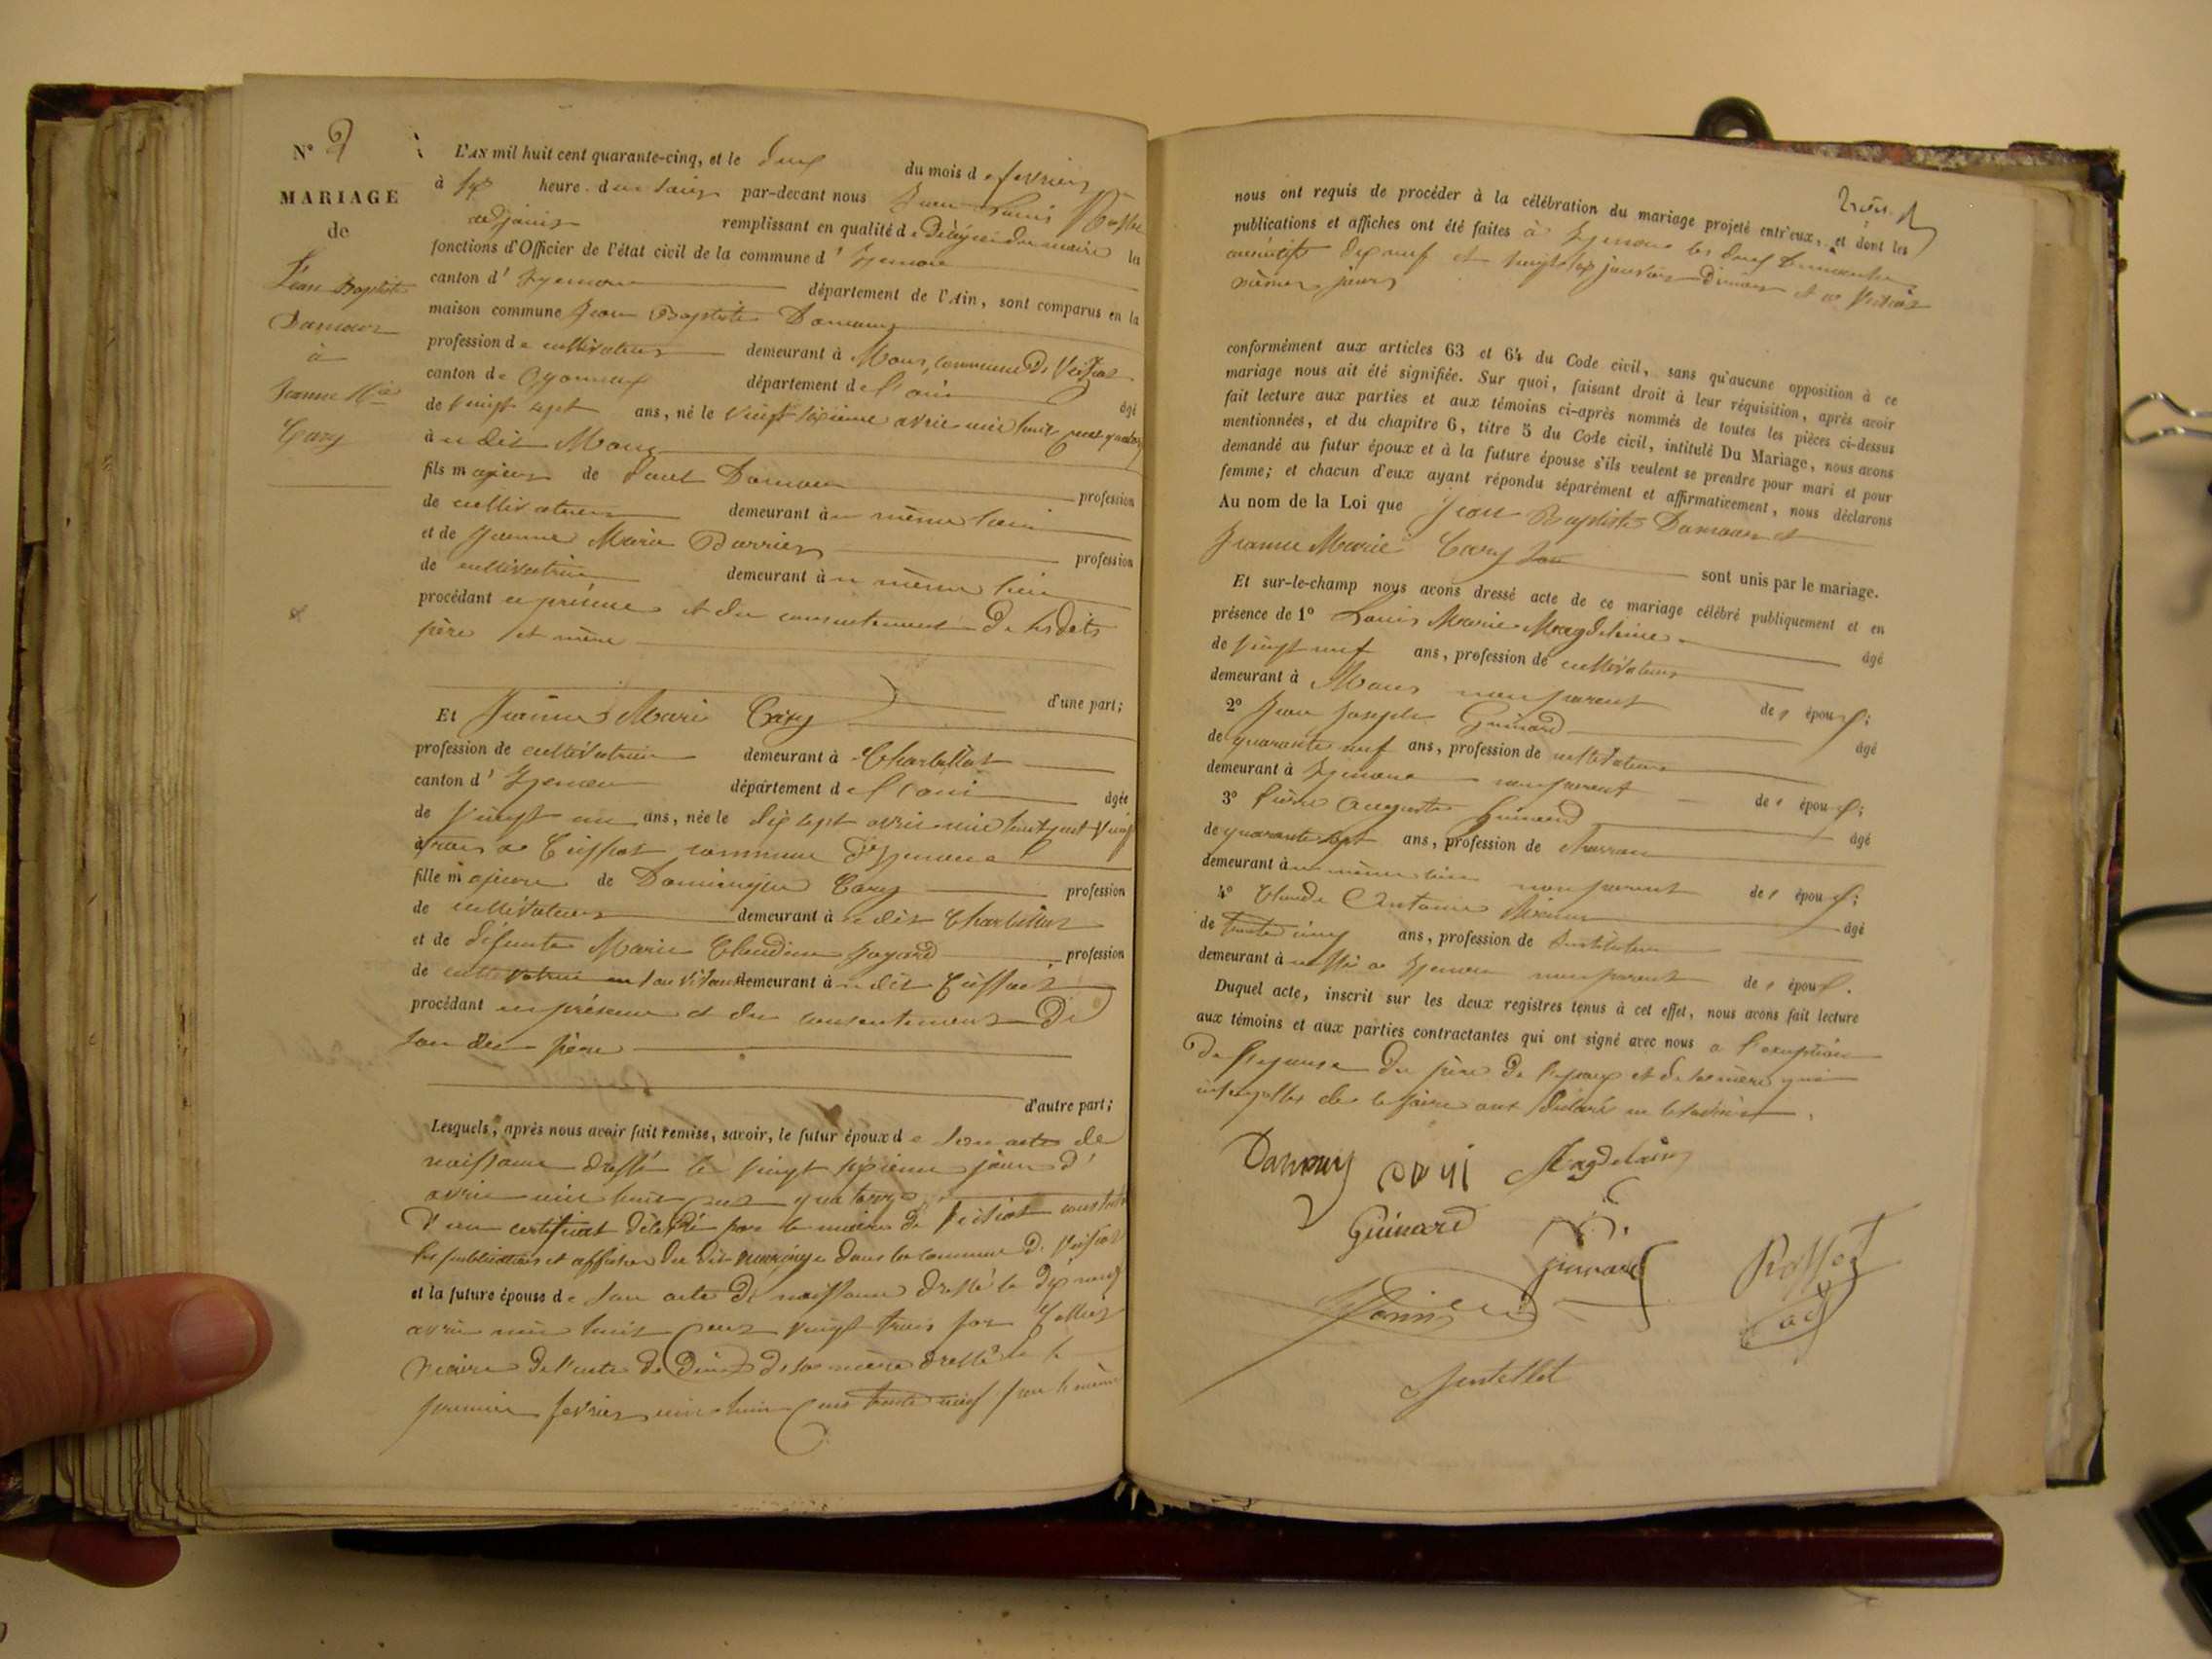 N° 2
MARIAGE
de
Jean Baptiste
Damour
à
Jeanne Mie
Cary
L'AN mil huit cent quarante-cinq, et le deux du mois de fevrier
à sept heure du soir par-devant nous Jean Louis Rosset
adjoint remplissant en qualité de Délégué du maire les
fonctions d'Officier de l'état civil de la commune d'Izernore
canton d'Izernore département de l'Ain, sont comparus en la
maison commune Jean Baptiste Damour
profession de cultivateur demeurant à Mons, commune de Veiziat
canton de Oyonnax département de l'ain âgé
de vingt sept ans, né le vingt sixieme avril mil huit cent quatorze
à u dit Mons
fils majeur de Paul Damour profession
de cultivateur demeurant à u même lieu
et de Jeanne Marie Barrier profession
de cultivatrice demeurant à u même lieu
procédant en présence et du consentement de ses dits
père et mère
d'une part;
Et Jeanne Marie Cary
profession de cultivatrice demeurant à Charbillat
canton d'Izernore département de l'ain âgée
de vingt un ans, née le dix sept avril mil huit cent vingt
trois a Ceissiat commune d'Izernore
fille majeure de Dominique Cary profession
de cultivateur demeurant à u dit Charbillat
et de défunte Marie Claudine profession
de cultivatrice en son vivant demeurant à u dit Ceissiat
procédant en présence et du consentement de
son dit père
d'autre part;
Lesquels, après nous avoir fait remise, savoir, le futur époux de son acte de
naissance dressé le vingt sixieme jour d'
avril mil huit cent quatorze
d'un certificat délivré par le maire de Veiziat constatant
les publications et affiches du dit mariage dans la commune de Veiziat
et la future épouse de son acte de naissance dressé le dix neuf
avril mil huit cent vingt trois par
maire de l'acte de décès de sa mère dressé le
premier fevrier mil huit cent trente neuf par le même
trois
nous ont requis de procéder à la célébration du mariage projeté entr'eux, et dont les
publications et affiches ont été faites à Izernore les deux Dimanches
consécutifs dix neuf et vingt six janvier dernier et a Veiziat
mêmes jours
conformément aux articles 63 et 64 du Code civil, sans qu'aucune opposition à ce
mariage nous ait été signifiée. Sur quoi, faisant droit à leur réquisition, après avoir
fait lecture aux parties et aux témoins ci-après nommés de toutes les pièces ci-dessus
mentionnées, et du chapitre 6, titre 5 du Code civil, intitulé Du Mariage, nous avons
demandé au futur époux et à la future épouse s'ils veulent se prendre pour mari et pour
femme; et chacun d'eux ayant répondu séparément et affirmativement, nous déclarons
Au nom de la Loi que Jean Baptiste Damour et
Jeanne Marie Cary sont unis par le mariage.
Et sur-le-champ nous avons dressé acte de ce mariage célébré publiquement et en
présence de 1° Louis Marie Magdelaine âgé
de vingt neuf ans, profession de cultivateur
demeurant à Mons non parent de s épou x;
2° Jean Joseph Guinard âgé
de quarante neuf ans, profession de cultivateur
demeurant à Izernore non parent de s épou x;
3° Pierre Auguste Guinard âgé
de quarante sept ans, profession de charron
demeurant à u même lieu non parent de s épou x;
4° Claude Antoine âgé
de trente cinq ans, profession de Instituteur
demeurant à ussi a Izernore non parent de s épou x.
Duquel acte, inscrit sur les deux registres tenus à cet effet, nous avons fait lecture
aux témoins et aux parties contractantes qui ont signé avec nous a l'exception
de l'epouse du père de l'epoux et de sa mère qui
interpellés de le faire ont déclaré ne le savoir
Damour Magdelaine
Guinard
Guinard
Rosset
adj